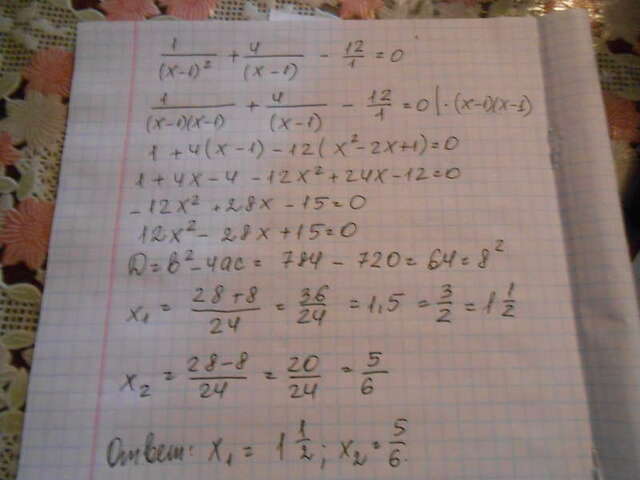 1/(x-1)² + 4/(x-1) - 12/1 = 0
1/(x-1)(x-1) + 4/(x-1) - 12/1 = 0 | · (x-1)(x-1)
1 + 4(x-1) - 12(x²-2x+1) = 0
1 + 4x - 4 - 12x² + 24x - 12 = 0
-12x² + 28x - 15 = 0
12x² - 28x + 15 = 0
D = b² - 4ac = 784 - 720 = 64 = 8²
x₁ = (28+8)/24 = 36/24 = 1,5 = 3/2 = 1 1/2
x₂ = (28-8)/24 = 20/24 = 5/6
Ответ: x₁ = 1 1/2; x₂ = 5/6.